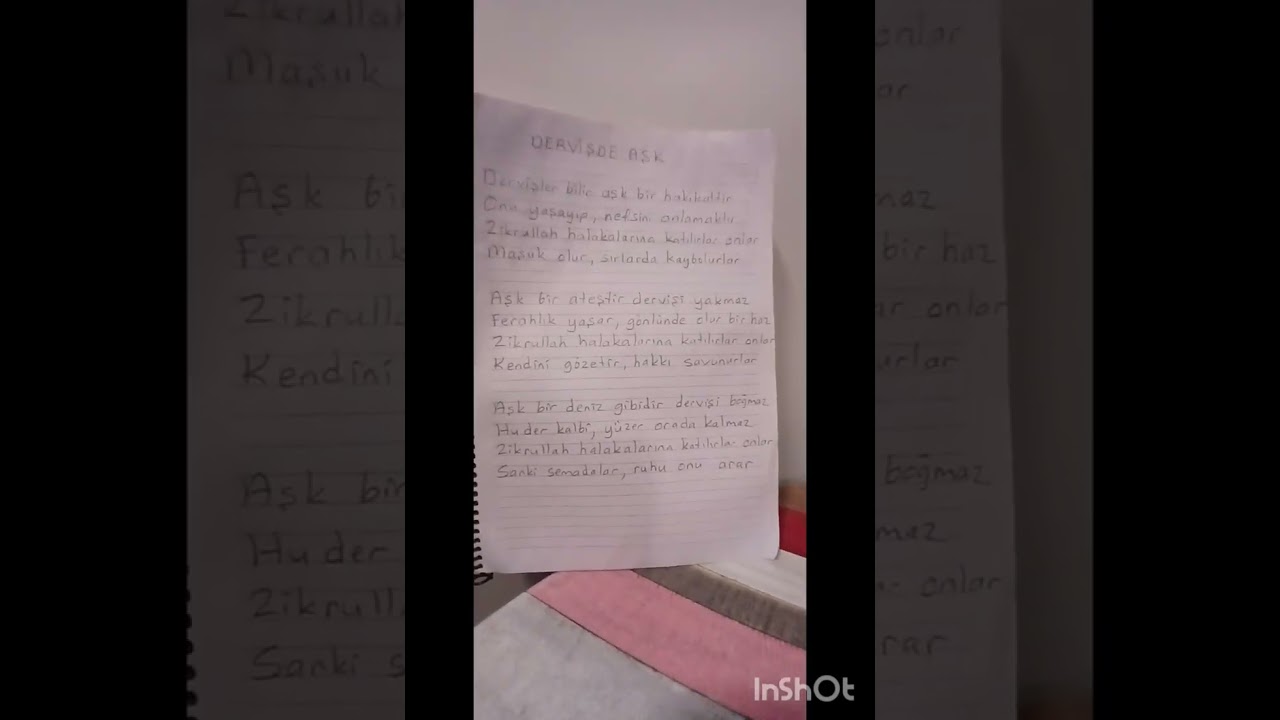 DERVİŞDE AŞK
Dervişler bilir aşk bir hakikattir
Onu yaşayıp, nefsini anlamaktır
Zikrullah halakalarına katılırlar onlar
Maşuk olur, sırlarda kaybolurlar
Aşk bir ateştir dervişi yakmaz
Ferahlık yaşar, gönlünde olur bir haz
Zikrullah halakalarına katılırlar onlar
Kendini gözetir, hakkı savunurlar
Aşk bir deniz gibidir dervişi boğmaz
Hu der kalbi, yüzer orada kalmaz
Zikrullah halakalarına katılırlar onlar
Sanki semadalar, ruhu onu arar
InShOt